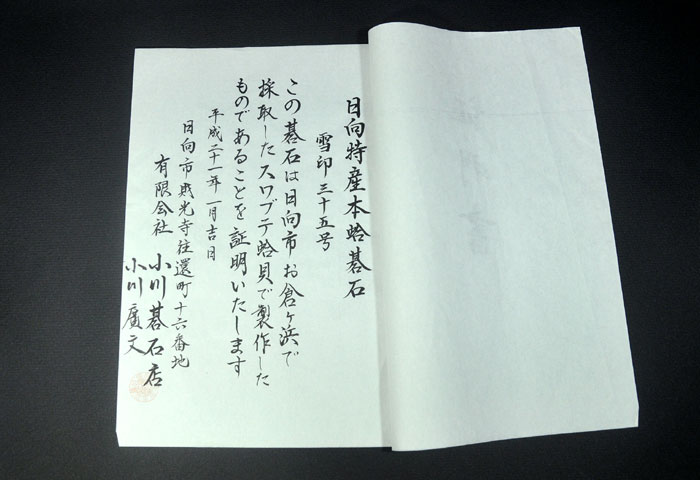 日向特産本蛤碁石
雪印三十五号
この碁石は日向市お倉ヶ浜で
採取したスワブテ蛤貝で製作した
ものであることを証明いたします
平成二十一年一月吉日
日向市財光寺往還町十六番地
有限会社 小川碁石店
小川廣文